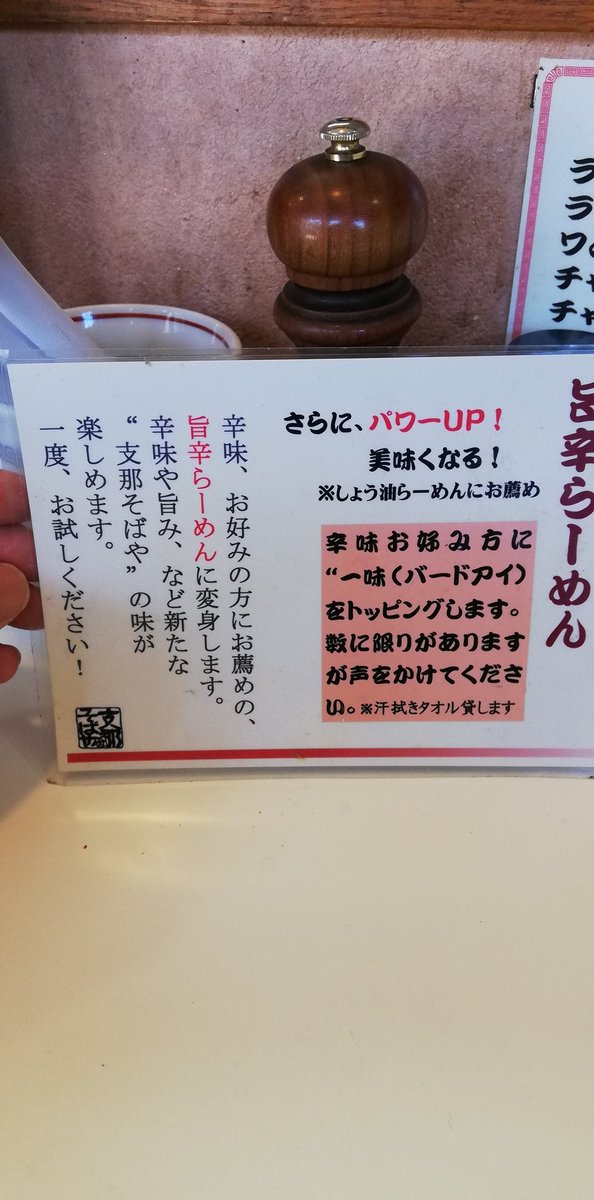 旨辛らーめん
さらに、パワーUP！
美味くなる！
※しょう油らーめんにお薦め
辛味お好み方に
“一味（バードアイ）
をトッピングします。
数に限りがあります
が声をかけてくださ
い。※汗拭きタオル貸します
辛味、お好みの方にお薦めの、
旨辛らーめんに変身します。
辛味や旨み、など新たな
“支那そばや”の味が
楽しめます。
一度、お試しください！
支那
そばや
ラ
ラ
ワ
チャ
チャ